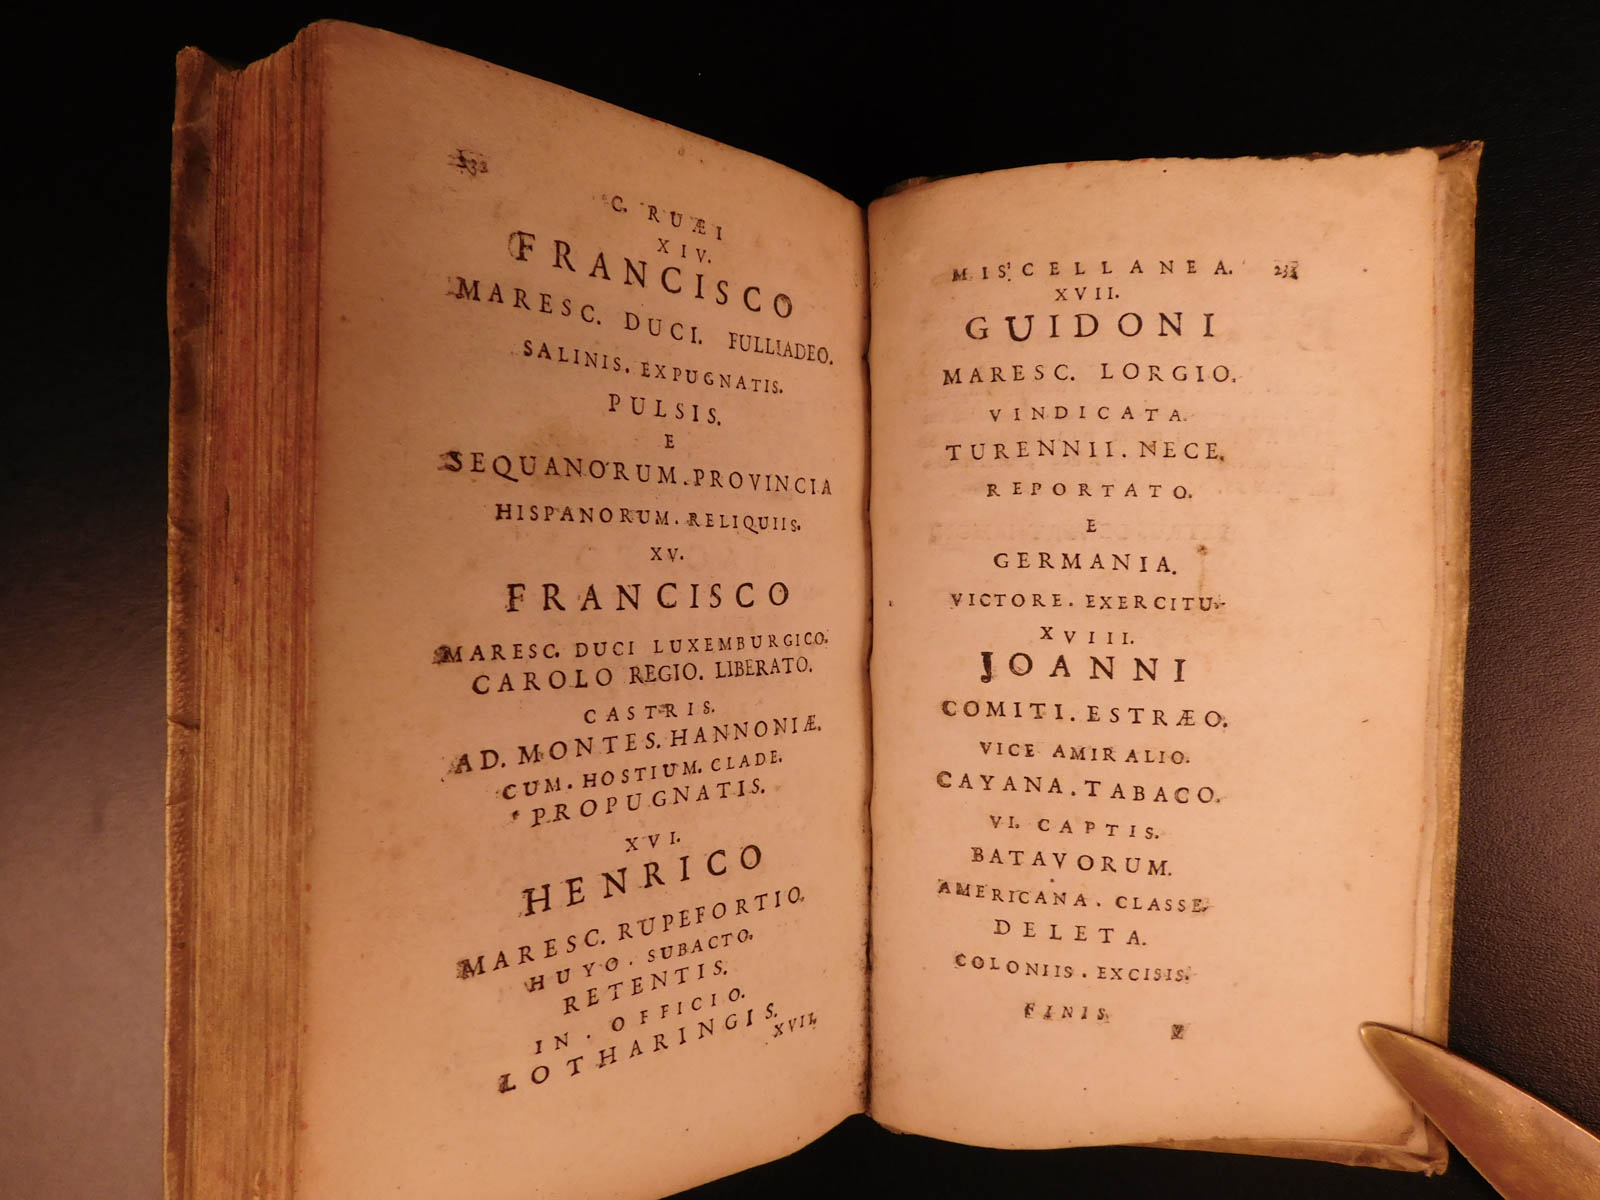 232
C. RUÆI
XIV.
FRANCISCO
MARESC. DUCI. FULLIADEO.
SALINIS. EXPUGNATIS.
PULSIS.
E
SEQUANORUM. PROVINCIA
HISPANORUM. RELIQUIIS.
XV.
FRANCISCO
MARESC. DUCI LUXEMBURGICO.
CAROLO REGIO. LIBERATO.
CASTRIS.
AD. MONTES. HANNONIÆ.
CUM. HOSTIUM. CLADE.
PROPUGNATIS.
XVI.
HENRICO
MARESC. RUPEFORTIO.
HUYO. SUBACTO.
RETENTIS.
IN. OFFICIO.
LOTHARINGIS.
XVII.
MISCELLANEA.
XVII.
GUIDONI
MARESC. LORGIO.
VINDICATA.
TURENNII. NECE.
REPORTATO.
E
GERMANIA.
VICTORE. EXERCITU.
XVIII.
JOANNI
COMITI. ESTRÆO.
VICE AMIRALIO.
CAYANA. TABACO.
VI. CAPTIS.
BATAVORUM.
AMERICANA. CLASSE.
DELETA.
COLONIIS. EXCISIS.
FINIS.
V